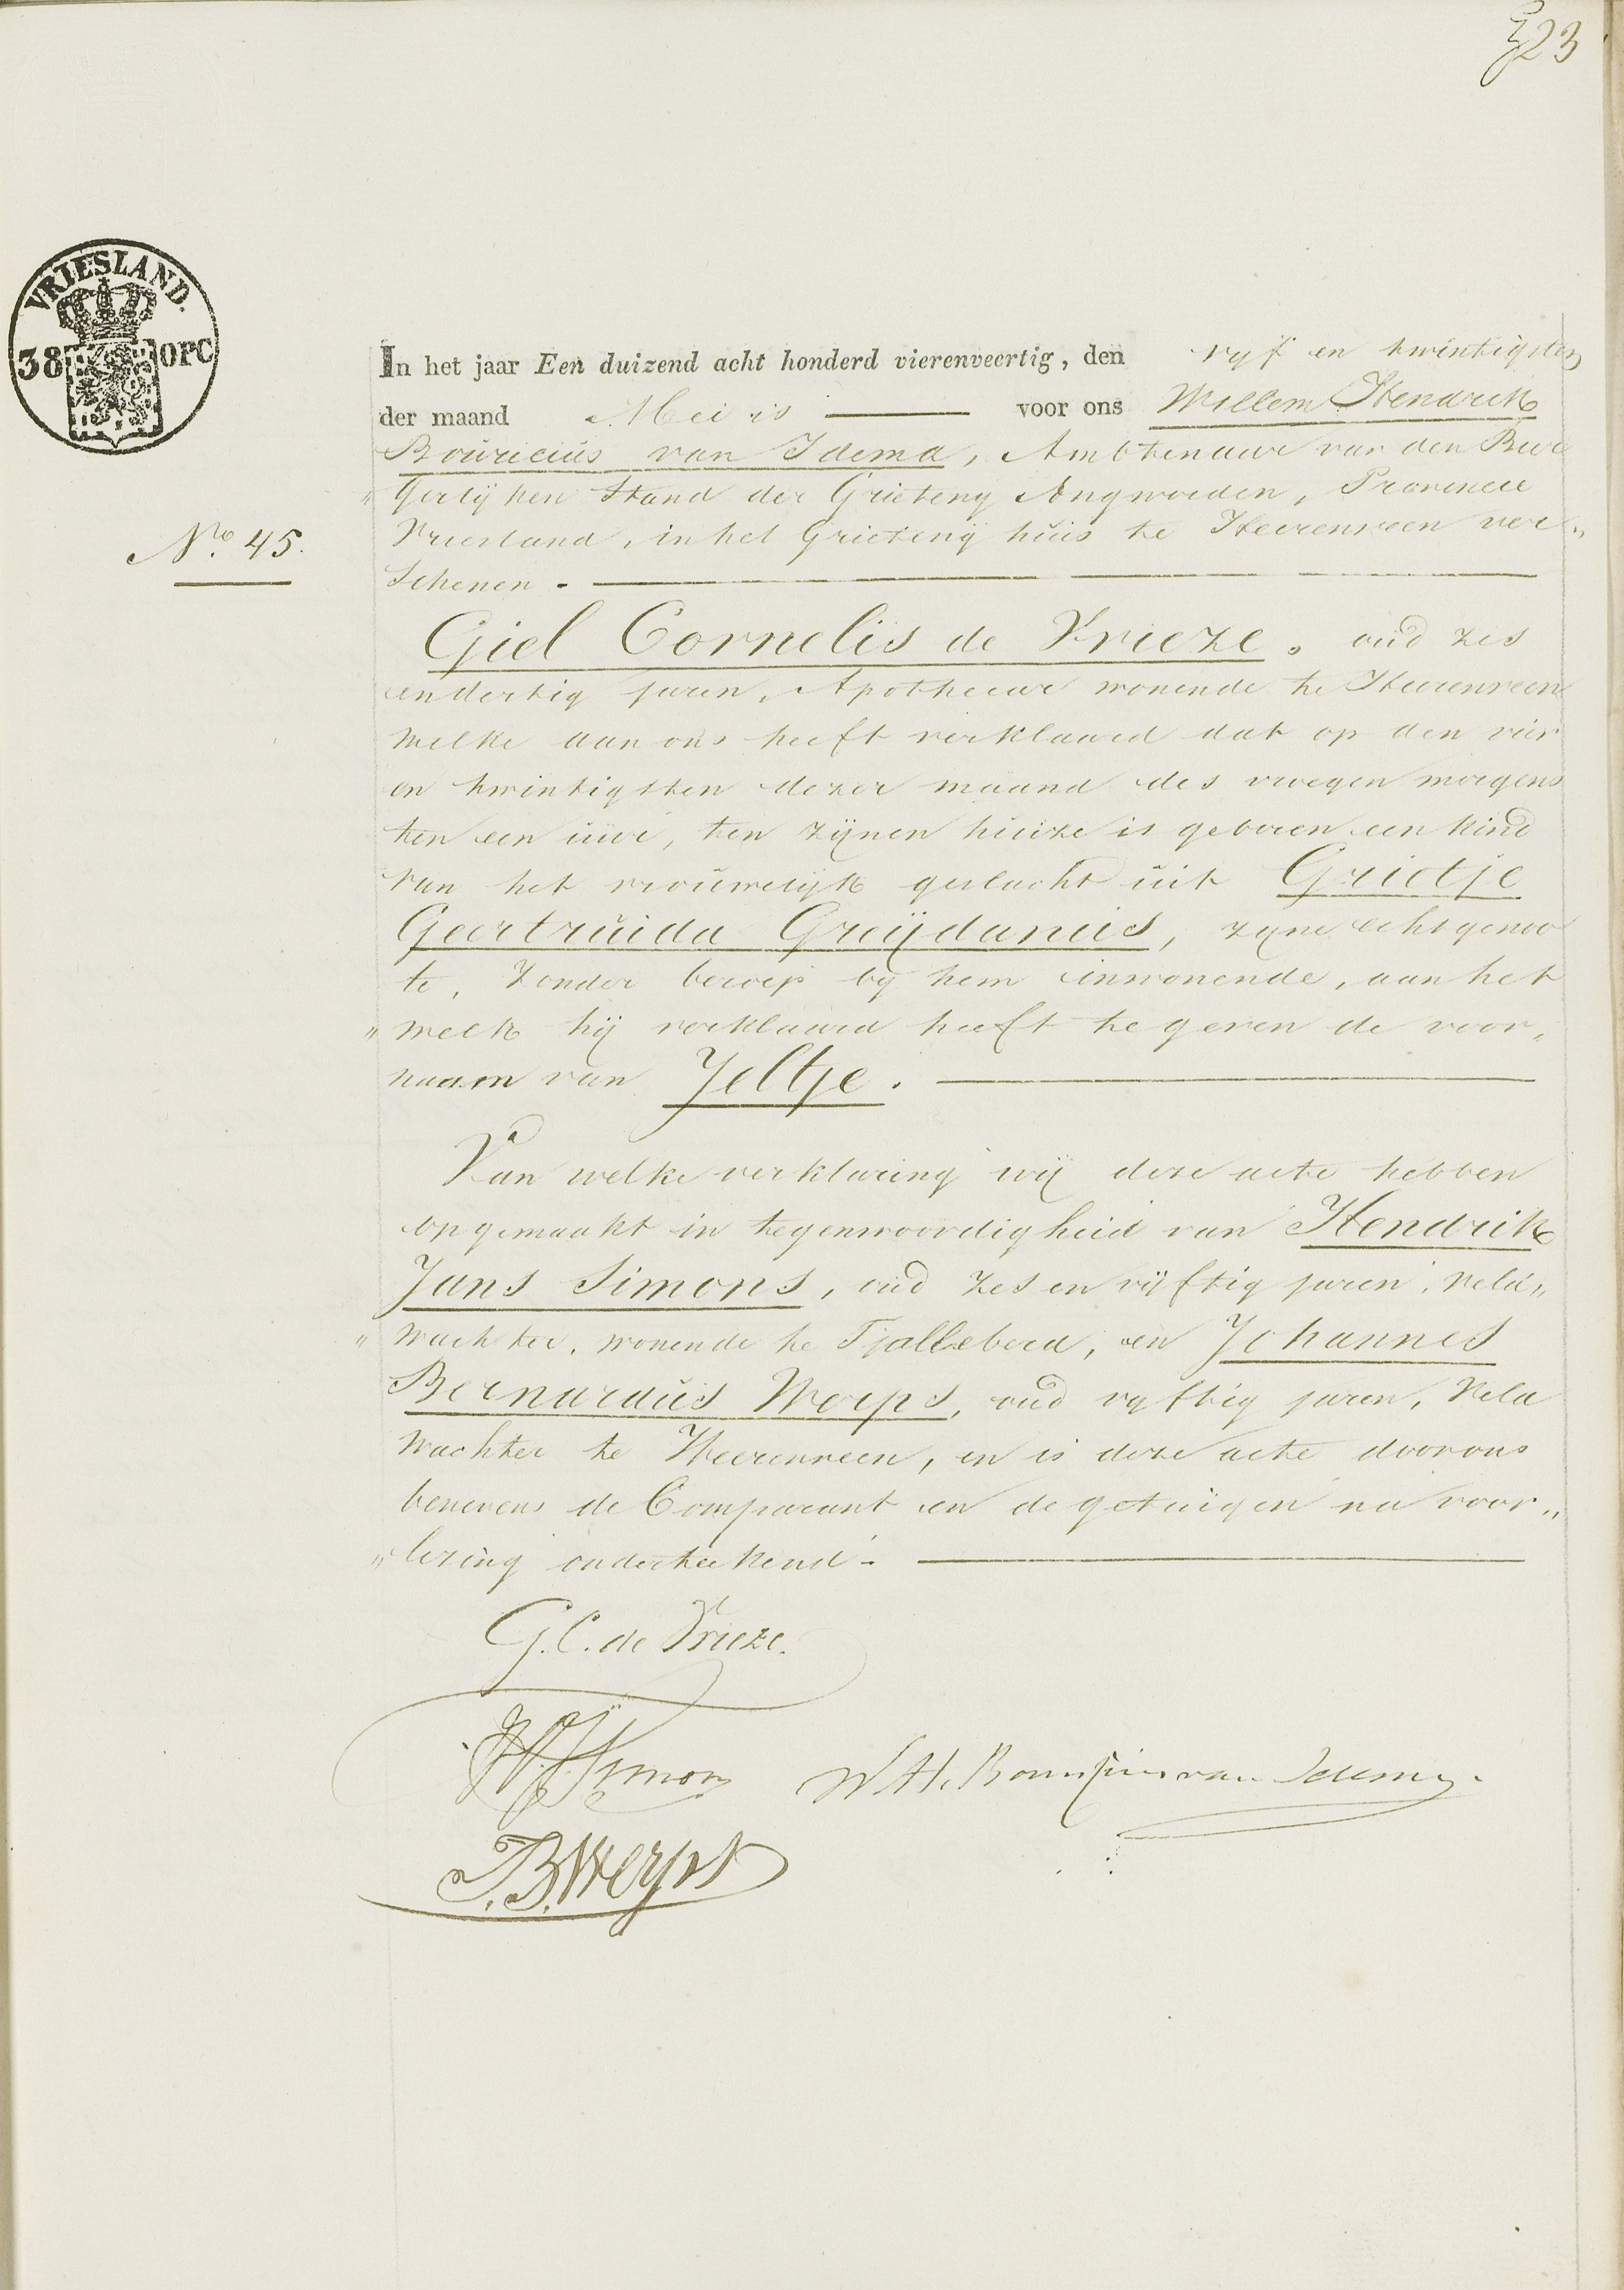 23
VRIESLAND.
38 OPC
In het jaar Een duizend acht honderd vierenveertig, den vyf en twintigsten
der maand Mei is voor ons Willem Hendrik
Bouricius van Idema, Ambtenaar van den Bur
„gerlijken Stand der Grieteny Ængwirden, Provincie
Vriesland, in het Grietenij huis te Heerenveen ver„
No. 45.
schenen.
Giel Cornelis de Vrieze. oud zes
endertig jaren, Apothecar wonende te Heerenveen
welke aan ons heeft verklaard dat op den vier
en twintigsten dezer maand des vroegen morgens
ten een uur, ten zijnen huize is geboren een kind
van het vrouwelijk geslacht uit Grietje
Geertruida Greijdanus, zyne echtgenoo
te, zonder beroep by hem inwonende, aan het
„welk hij verklaard heeft te geven de voor„
naam van Jeltje.
Van welke verklaring wij deze acte hebben
opgemaakt in tegenwoordigheid van Hendrik
Jans Simons, oud zes en vijftig jaren, veld„
„wachter, wonende te Tjallebird, en Johannes
Bernardus Werps, oud vyftig jaren, veld
wachter te Heerenveen, en is deze acte door ons
benevens de Comparant en de getuigen na voor„
„lezing onderteekend.
G.C. de Vrieze.
H J Simons W.H. Bouricius van Idema.
J.B. Werps